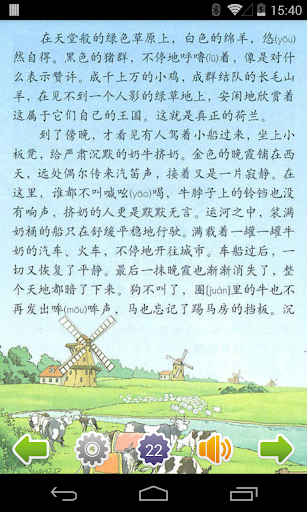 15:40
在天堂般的绿色草原上，白色的绵羊，悠(yōu)
然自得。黑色的猪群，不停地呼噜(lū)着，像是对什
么表示赞许。成千上万的小鸡，成群结队的长毛山
羊，在见不到一个人影的绿草地上，安闲地欣赏着
这属于它们自己的王国。这就是真正的荷兰。
到了傍晚，才看见有人驾着小船过来，坐上小
板凳，给严肃沉默的奶牛挤奶。金色的晚霞铺在西
天，远处偶尔传来汽笛声，接着又是一片寂静。在
这里，谁都不叫喊吆(yāo)喝，牛脖子上的铃铛也没
有响声，挤奶的人更是默默无言。运河之中，装满
奶桶的船只在舒缓平稳地行驶。满载着一罐一罐牛
奶的汽车、火车，不停地开往城市。车船过后，一
切又恢复了平静。最后一抹晚霞也渐渐消失了，整
个天地都暗了下来。狗不叫了，圈[juàn]里的牛也不
再发出哞(mōu)哞声，马也忘记了踢马房的挡板。沉
22